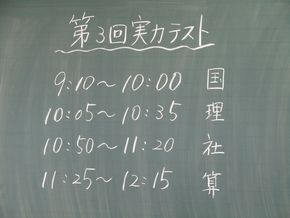 第3回実力テスト
9:10〜10:00 国
10:05〜10:35 理
10:50〜11:20 社
11:25〜12:15 算